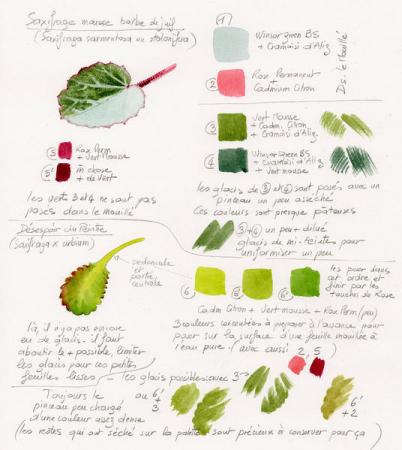 Saxifrage mauve barbe de juif
(Saxifraga sarmentosa ou stolonifera)
1
Winsor Green BS
+ Cramoisi d'Aliz
2
Rose Permanent
+
Cadmium Citron
Ds. le Mouillé
3
Vert Mousse
+ Cadm. Citron
+ Cramoisi d'Aliz
4
Winsor Green BS
+ Cramoisi d'Aliz
+ Vert Mousse
5
Rose Perm
+ Vert Mousse
5'
m chose
+ de Vert
les verts 3 et 4 ne sont pas
posés dans le mouillé
les glacis de 3 et 4 sont posés avec un
pinceau un peu asséché
Ces couleurs sont presque pâteuses
3 + 4 un peu + dilué
glacis de mi-teintes pour
uniformiser un peu
Désespoir du Peintre
(saxifraga x urbium)
pédoncule
et partie
centrale
6
6'
6"
les poser dans
cet ordre et
finir par les
touches de Rose
Cadm Citron + Vert Mousse + Rose Perm (peu)
3 couleurs concentrées à préparer à l'avance pour
poser sur la surface d'une feuille mouillée à
l'eau pure. (avec aussi 2, 5)
là, il n'y a pas encore
eu de glacis. il faut
aboutir le + possible, limiter
les glacis pour ces petites
feuilles lisses) — les glacis possibles: avec 3
Toujours le
pinceau peu chargé
d'une couleur assez dense
ou 6'
+
3
6'
+ 2
(les restes qui ont séché sur la palette sont précieux à conserver pour ça)